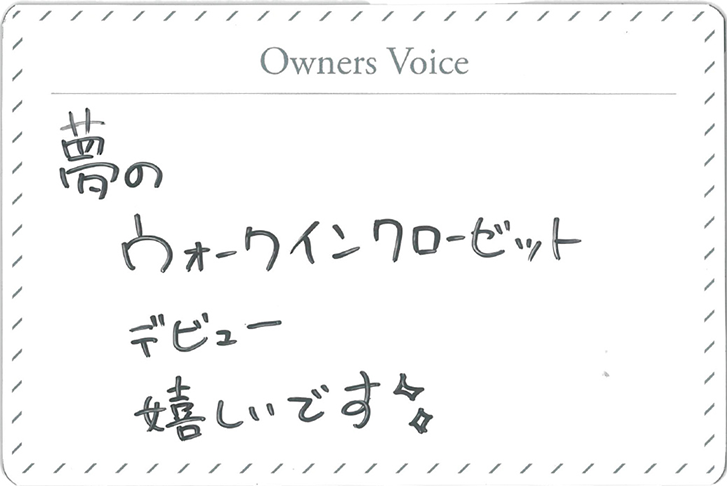 Owners Voice
夢の
ウォークインクローゼット
デビュー
嬉しいです